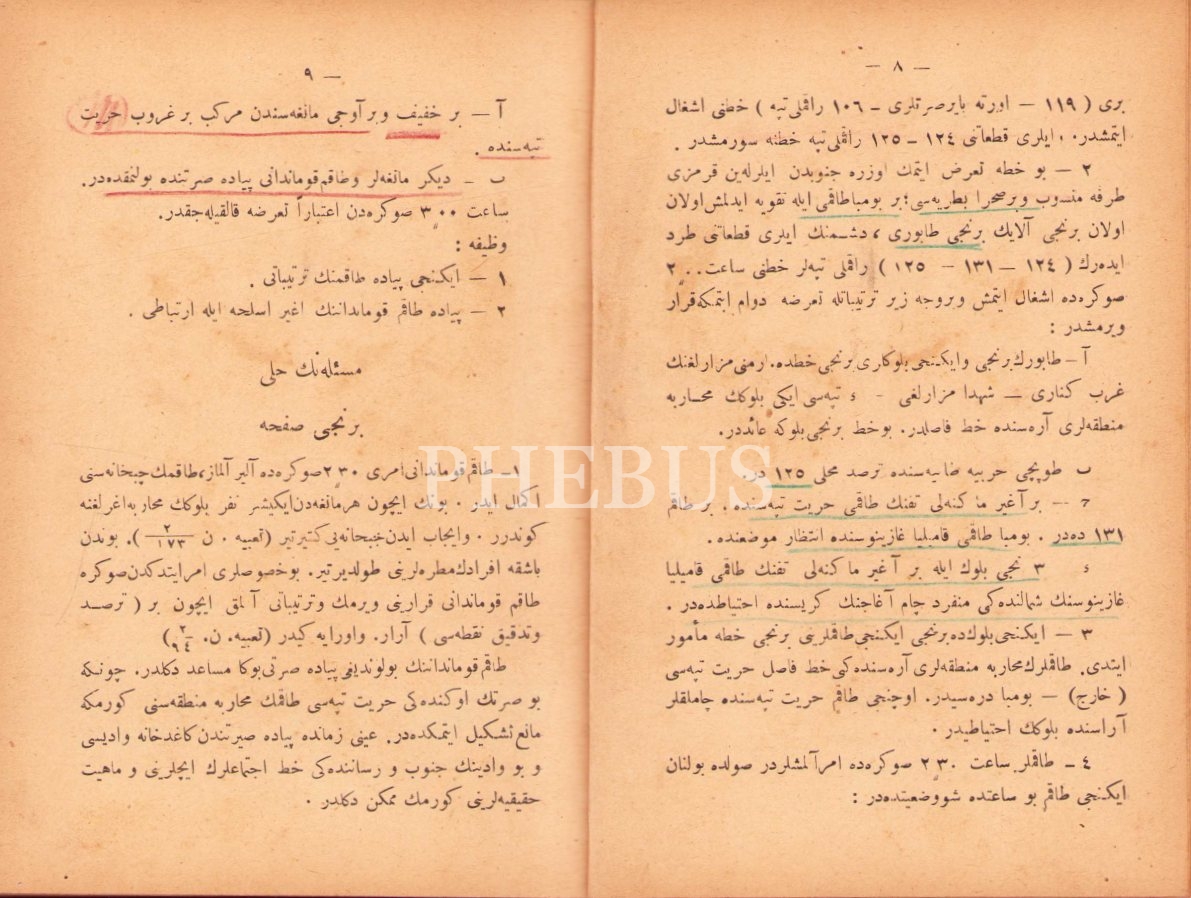 — ٨ —
برى ( ١١٩ — اورته بايرصرتلرى ـ ١٠٦ راقملى تپه ) خطنى اشغال
ايتمشدر. ايلرى قطعاتنى ١٢٤ ـ ١٢٥ راقملى تپه خطنه سورمشدر .
٢ — بو خطه تعرض ايتمك اوزره جنوبدن ايلرله‌ين قرمزى
طرفه منسوب وبرصحرا بطريه‌سى؛ بر بومباطاقمى ايله تقويه ايدلمش اولان
اولان برنجى آلايك برنجى طابورى ، دشمنك ايلرى قطعاتنى طرد
ايده‌رك ( ١٢٤ — ١٣١ — ١٢٥ ) راقملى تپه‌لر خطنى ساعت ٢٠٠
صوكره‌ده اشغال ايتمش وبروجه زير ترتيباتله تعرضه دوام ايتمكه قرار
ويرمشدر :
آ — طابورك برنجى وايكنجى بلوكلرى برنجى خطده. ارمنى مزارلغنك
غرب كنارى — شهدا مزارلغى - ء تپه‌سى ايكى بلوكك محاربه
منطقه‌لرى آره‌سنده خط فاصلدر. بوخط برنجى بلوكه عائددر.
ب طوپچى حربيه ترصد محلى ١٢٥ در.
ج — بر آغير ماكنه‌لى تفنك طاقمى حريت تپه‌سنده . بر طاقم
١٣١ ده‌در . بومبا طاقمى قامبليا غازينوسنده انتظار موضعنده.
ء ٣ نجى بلوك ايله بر آغير ماكنه‌لى تفنك طاقمى قامپليا
غازينوسنك شمالنده‌كى منفرد چام آغاجنك كريسنده احتياطده‌در .
٣ — ايكنجى بلوك‌ده برنجى ايكنجى طاقملرينى برنجى خطه مأمور
ايتدى. طاقملرك محاربه منطقه‌لرى آره‌سنده‌كى خط فاصل حريت تپه‌سى
( خارج ) — بومبا دره‌سيدر. اوچنجى طاقم حريت تپه‌سنده چاملقلر
آراسنده بلوكك احتياطيدر .
٤ ـ طاقملر ساعت ٢٣٠ صوكره‌ده امر آلمشلردر صولده بولنان
ايكنجى طاقم بو ساعتده شو وضعيتده‌در :
— ٩
آ — بر خفيف وبر آوجى مانغه‌سندن مركب بر غروب حريت
تپه‌سنده .
ب ـ ديكر مانغه‌لر وطاقم قوماندانى پياده صرتنده بولنمقده‌در.
ساعت ٣٠٠ صوكره‌دن اعتباراً تعرضه قالقيله‌جقدر.
وظيفه :
١ — ايكنجى پياده طاقمنك ترتيباتى .
٢ — پياده طاقم قومانداننك اغير اسلحه ايله ارتباطى .
مسئله‌نك حلى
برنجى صفحه
١ـ طاقم قوماندانى امرى ٢٣٠ صوكره‌ده آلير آلماز، طاقمك جبخانه‌سنى
اكمال ايدر . بونك ايچون هر مانغه‌دن ايكيشر نفر بلوكك محاربه اغرلغنه
كوندرر . وايجاب ايدن جبخانه‌يى كتيرتير (تعبيه . ن ٢/١٧٣). بوندن
باشقه افرادك مطره‌لرينى طولديرتير. بو خصوصلرى امر ايتدكدن صوكره
طاقم قوماندانى قرارينى ويرمك وترتيباتى آلمق ايچون بر ( ترصد
وتدقيق نقطه‌سى ) آرار. واورايه كيدر (تعبيه. ن. ٢/٩٤)
طاقم قومانداننك بولونديغى پياده صرتى بوكا مساعد دكلدر. چونكه
بو صرتك اوكنده‌كى حريت تپه‌سى طاقمك محاربه منطقه‌سنى كورمكه
مانع تشكيل ايتمكده‌در. عينى زمانده پياده صيرتندن كاغدخانه واديسى
و بو وادينك جنوب و رساننده‌كى خط اجتماعلرك ايچلرينى و ماهيت
حقيقيه‌لرينى كورمك ممكن دكلدر .
PHEBUS